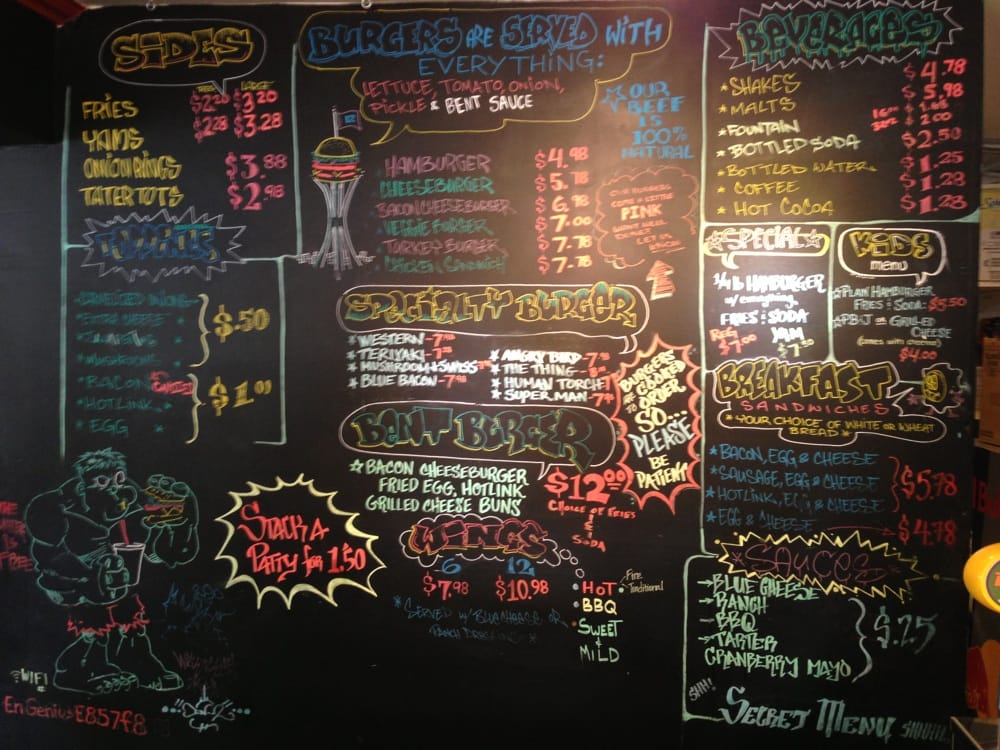 SIDES
REG LARGE
FRIES $2.20 $3.20
YAMS $2.28 $3.28
ONION RINGS $3.88
TATER TOTS $2.98
TOPPINGS
EXTRA CHEESE
MUSHROOMS
$.50
BACON
HOTLINK
EGG
$1.00
BURGERS ARE SERVED WITH
EVERYTHING:
LETTUCE, TOMATO, ONION,
PICKLE & BENT SAUCE
OUR
BEEF
IS
100%
NATURAL
HAMBURGER $4.98
CHEESEBURGER $5.78
BACON CHEESEBURGER $6.98
VEGGIE BURGER $7.00
TURKEY BURGER $7.78
CHICKEN SANDWICH $7.78
OUR BURGERS
COME A LITTLE
PINK
LET US
KNOW
SPECIALTY BURGER
WESTERN
TERIYAKI
MUSHROOM & SWISS
BLUE BACON
ANGRY BIRD
THE THING
HUMAN TORCH
SUPER MAN
BURGERS
ARE COOKED
TO ORDER
SO...
PLEASE
BE
PATIENT
BENT BURGER
BACON CHEESEBURGER
FRIED EGG, HOTLINK
GRILLED CHEESE BUNS
$12.00
CHOICE OF FRIES
&
SODA
WINGS
6 12
$7.98 $10.98
SERVED W/ BLUE CHEESE OR
RANCH DRESSING
HOT
Fire
Traditional
BBQ
SWEET
&
MILD
STACK A
PATTY for 1.50
WIFI
EnGeniusE857f8
BEVERAGES
SHAKES $4.78
MALTS $5.98
FOUNTAIN 16oz
32oz 2.00
BOTTLED SODA $2.50
BOTTLED WATER $1.25
COFFEE $1.28
HOT COCOA $1.28
SPECIAL
1/4 lb HAMBURGER
w/ everything
FRIES & SODA
REG YAM
$7.00 $7.50
KIDS
MENU
PLAIN HAMBURGER
FRIES & SODA $5.50
PB&J OR GRILLED
CHEESE
$4.00
BREAKFAST
SANDWICHES
YOUR CHOICE OF WHITE OR WHEAT
BREAD
BACON, EGG & CHEESE
SAUSAGE, EGG & CHEESE
HOTLINK, EGG & CHEESE
$5.78
EGG & CHEESE $4.78
SAUCES
BLUE CHEESE
RANCH
BBQ
TARTER
CRANBERRY MAYO
$.25
SHH!
SECRET MENU